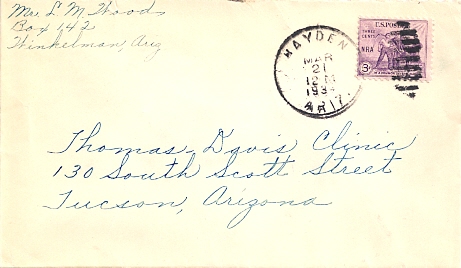 Mrs. L. M. Woods
Box 142
Winkelman, Ariz
HAYDEN
MAR
21
12 M
1934
ARIZ.
U.S. POSTAGE
THREE CENTS
NRA
3¢
Thomas-Davis Clinic
130 South Scott Street
Tucson, Arizona